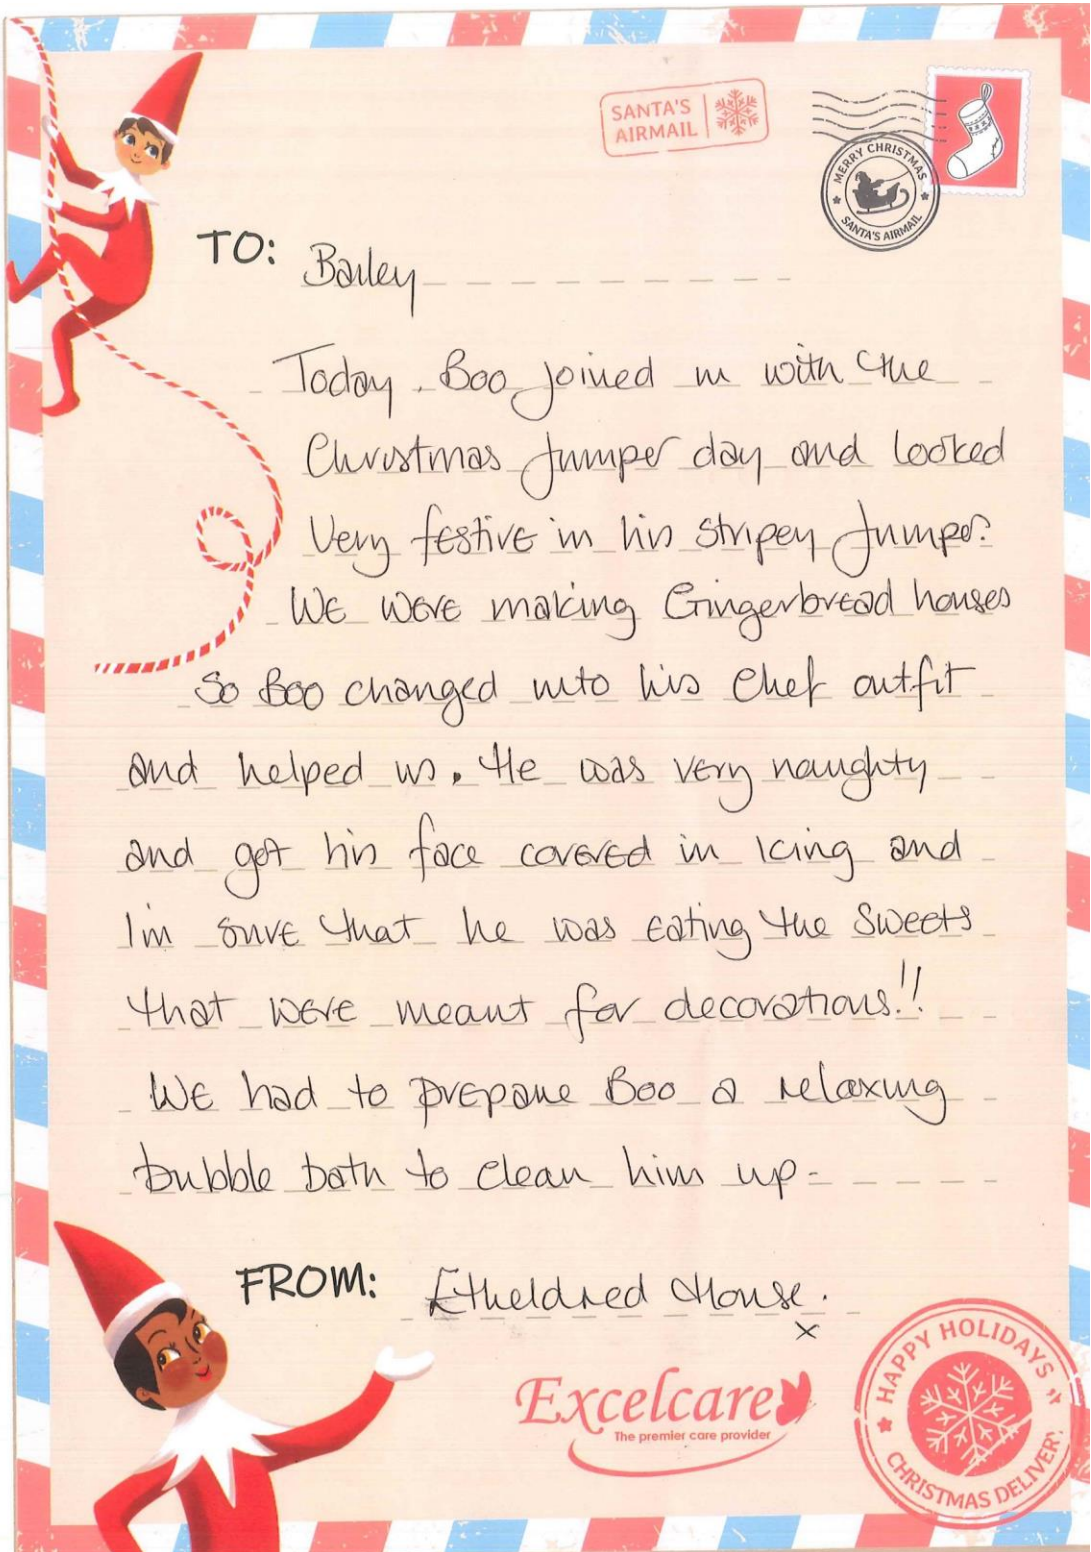 SANTA'S
AIRMAIL
MERRY CHRISTMAS
SANTA'S AIRMAIL
TO: Bailey
Today. Boo joined in with the
Christmas Jumper day and looked
Very festive in his stripey Jumper.
We were making Gingerbread houses
So Boo changed into his Chef outfit
and helped us. He was very naughty
and got his face covered in Icing and
I'm sure that he was eating the Sweets
that were meant for decorations!!
We had to prepare Boo a relaxing
bubble bath to clean him up-
FROM: Etheldred House.
x
Excelcare
The premier care provider
HAPPY HOLIDAYS
CHRISTMAS DELIVERY